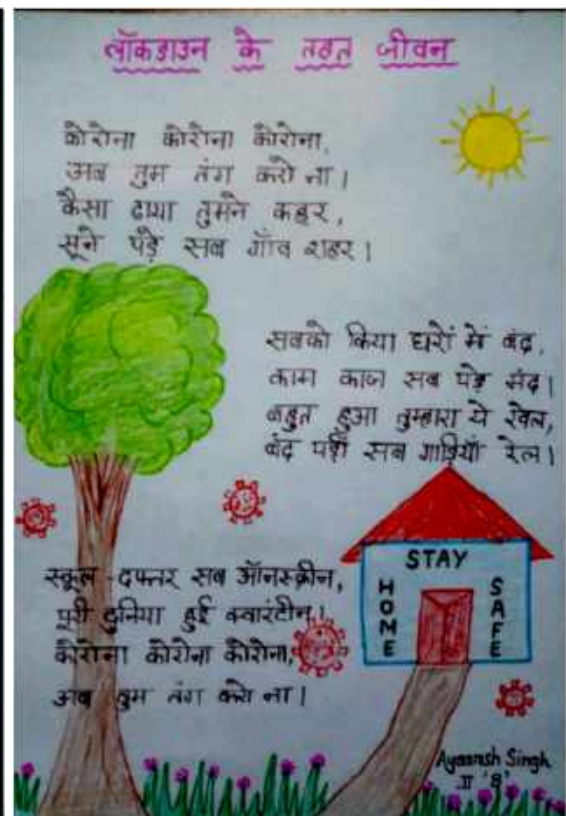 लॉकडाउन के तहत जीवन
कोरोना कोरोना कोरोना,
अब तुम तंग करो ना।
कैसा ढाया तुमने कहर,
सूने पड़े सब गाँव शहर।
सबको किया घरों में बंद,
काम काज सब पड़े मंद।
बहुत हुआ तुम्हारा ये खेल,
बंद पड़ी सब गाड़ियाँ रेल।
स्कूल-दफ्तर सब ऑनस्क्रीन,
पूरी दुनिया हुई क्वारंटीन।
कोरोना कोरोना कोरोना,
अब तुम तंग करो ना।
STAY
HOME
SAFE
Ayaansh Singh
II 'B'